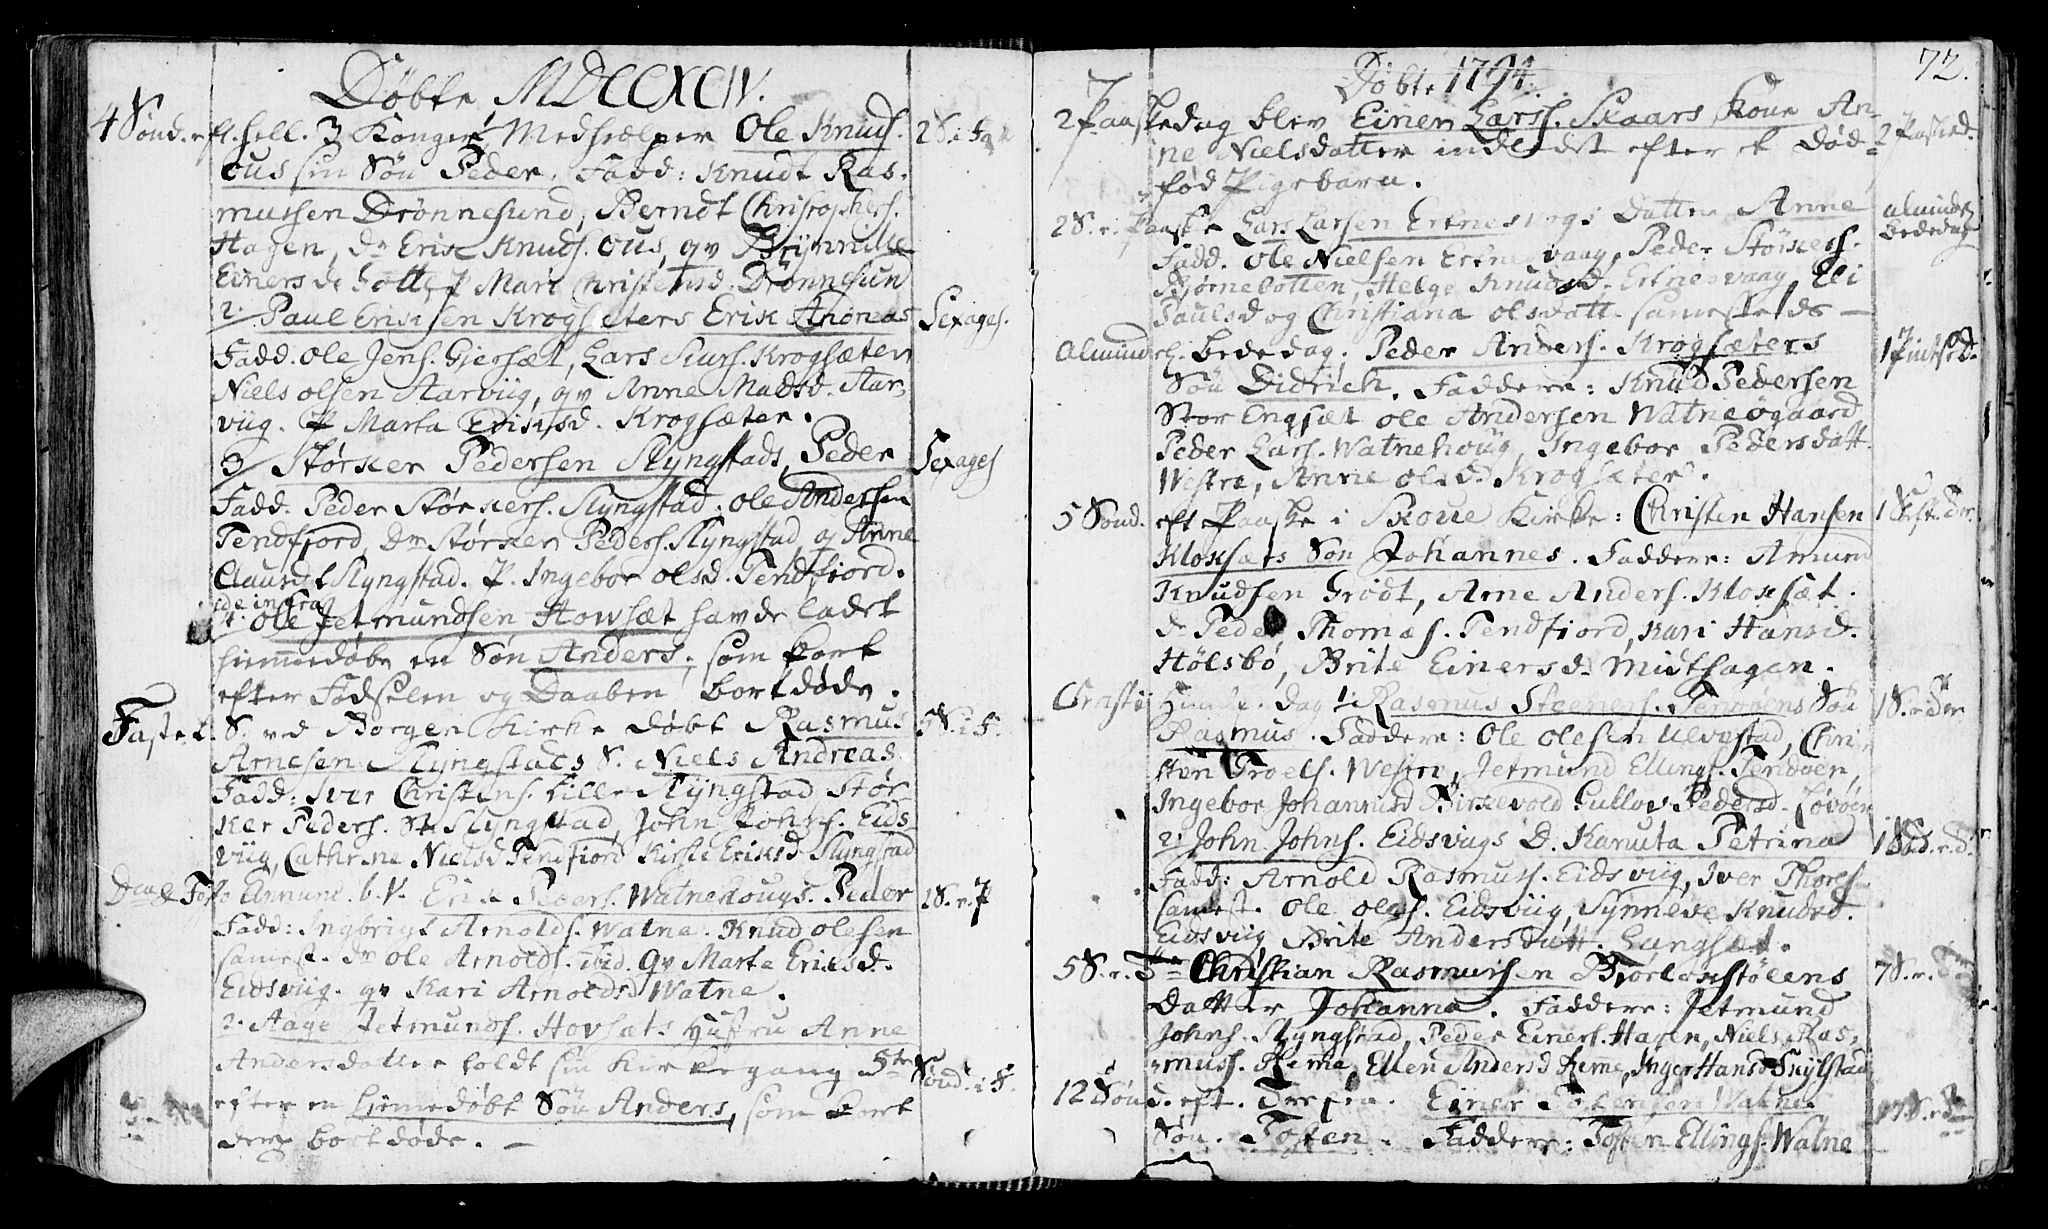 Døbte MDCCXCIV.
4 Sønd. eft. hell. 3 Konger Medhielper Ole Knuds. 2 S. i Fa
Ous sin Søn Peder. Fadd: Knudt Ras-
mussen Drönnesund, Berndt Christophers.
Hagen, Dr Erik Knuds. Ous, qv Brynnild
Einersd. Hotte, P Mari Christensd. Drønnesun
2. Paul Eriksen Krogsæters Erik Andreas Sexages.
Fadd. Ole Jens. Giersæt, Lars Siurs. Krogsæter
Niels Olsen Aarviig, qv Anne Madsd. Aar-
viig. P Marta Eriksd. Krogsæter.
3 Størker Pedersen Slyngstads, Peder Sexages
Fadd. Peder Størkers. Slyngstad. Ole Andersen
Tendfjord, Dr Størker Peders. Slyngstad qv Anne
Clausd. Slyngstad. P. Ingebor Olsd. Tendfiord.
vide infra
4. Ole Jetmundsen Howsæt havde ladet
hiemmedøbe en Søn Anders, som kort
efter Fødselen og Daaben bortdøde.
Fastel. S. ved Borgen Kirke døbt Rasmus 5 S. i F.
Arnesen Slyngstads S. Niels Andreas
Fadd: Iver Christens. Lille Slyngstad Stør
ker Peders. St. Slyngstad, John Johns. Eids-
viig, Cathrine Nielsd Tendfiord Kirsti Eriksd Slyngstad
Festo Annunc. b. V. Erik Peders. Watnehougs. Peder 1 S. e. P
Fadd: Ingbrigt Arnolds. Watne. Knud Olesen
samest. Dr Ole Arnolds. ibid. Qv Marte Eriksd.
Eidsviig. qv Kari Arnoldsd Watne.
2. Aage Jetmunds. Hovsæts Hustru Anne
Andersdatter holdt sin Kirkegang 5te Sönd. i F.
efter en hiemedøbt Søn Anders, som kort
derefter bortdøde. —
Døbte 1794. 72.
2 Paaskedag blev Einer Larss. Skaars Kone An- 2 Paasked.
ne Nielsdatter indledet efter et død-
fød Pigebarn.
2 S. e. Paaske Lars Larsen Ertnesvogs Datter Anne Almindel. Bededag
Fadd. Ole Nielsen Ertnesvaag, Peder Størkers.
Biørnebotten, Helge Knudsd. Ertnesvaag, Eli
Paulsd og Christiana Olsdatt. samesteds —
Almindel. bededag. Peder Anders. Krogsæters 1 Pintsed.
Søn Didrich. Faddere: Knud Pedersen
Stor Engsæt Ole Andersen Watneøgaard
Peder Lars. Watnehoug, Ingebor Pedersdatt
Westre, Anne Olsd. Krogsæter.
5 Sønd. eft Paaske i Skoue Kirke: Christen Hansen 1 S. eft. Tr.
Kloksæts Søn Johannes. Faddere: Amund
Knudsen Grödt, Arne Anders. Kloksæt.
Dr Peder Thomæs. Tendfiord, Kari Hansd.
Hölsbö, Brite Einersd. Midthagen.
Christi Himelf. Dag 1. Rasmus Steeners. Tenøens Søn 1 S. e. Tr
Rasmus. Faddere: Ole Olesen Ulvestad, Chri-
sten Troels. Westre, Jetmund Ellings. Tenøen,
Ingebor Johannisd Birkevold Gullov Pedersd. Løvøen
2. John Johns. Eidsvigs D. Kanuta Petrina 1 S. e. Tr
Fadd: Arnold Rasmuss. Eidsviig, Iver Thores.
samest. Ole Oles. Eidsviig, Synneve Knudsd.
Eidsviig, Brite Andersdatt. Langsæt.
5 S. e. Tr. Christian Rasmussen Biørlokstølens 7 S. e. Tr
Datter Johanna. Faddere: Jetmund
Johns. Slyngstad, Peder Einers. Hagen, Niels Ras-
muss. Reme, Ellen Andersd Reme, Inger Hansd Suylstad
12 Søn d. eft. Trefin. Einer Tostensen Watnes 17 S. e. Tr
Søn. Tosten. Faddere: Tosten Ellings. Watne